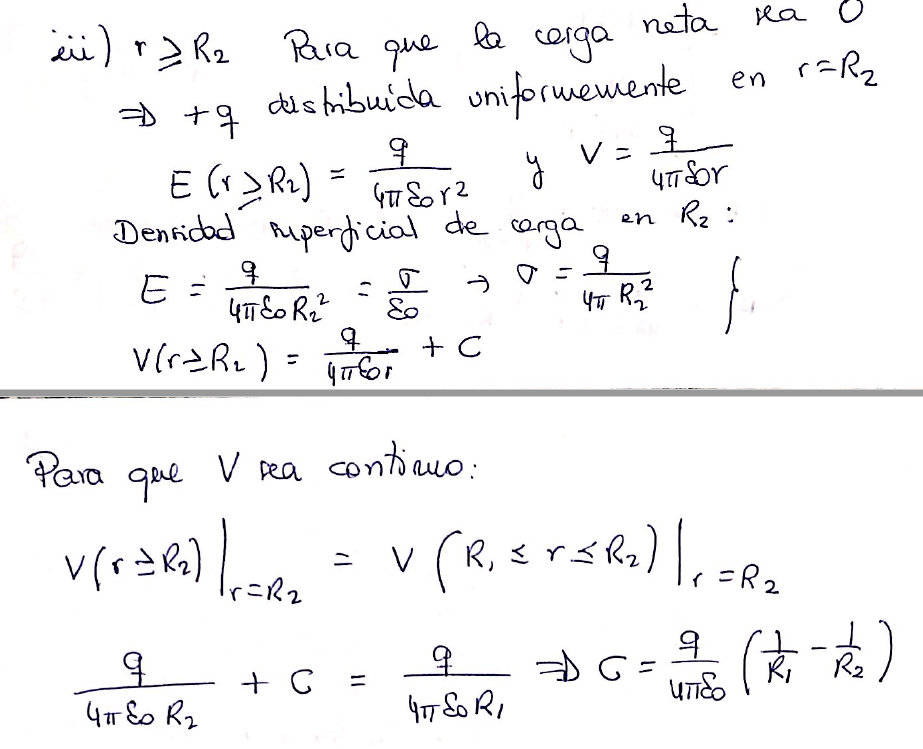 iii) r ≥ R₂ Para que la carga neta sea 0
⇒ +q distribuida uniformemente en r=R₂
E (r ≥ R₂) = q / (4πε₀r²) y V = q / (4πε₀r)
Densidad superficial de carga en R₂ :
E = q / (4πε₀R₂²) = σ / ε₀ → σ = q / (4πR₂²) }
V(r≥R₂) = q / (4πε₀r) + C
Para que V sea continuo:
V(r≥R₂)|r=R₂ = V (R₁ ≤ r ≤ R₂)|r=R₂
q / (4πε₀R₂) + C = q / (4πε₀R₁) ⇒ C = q / (4πε₀) (1/R₁ - 1/R₂)